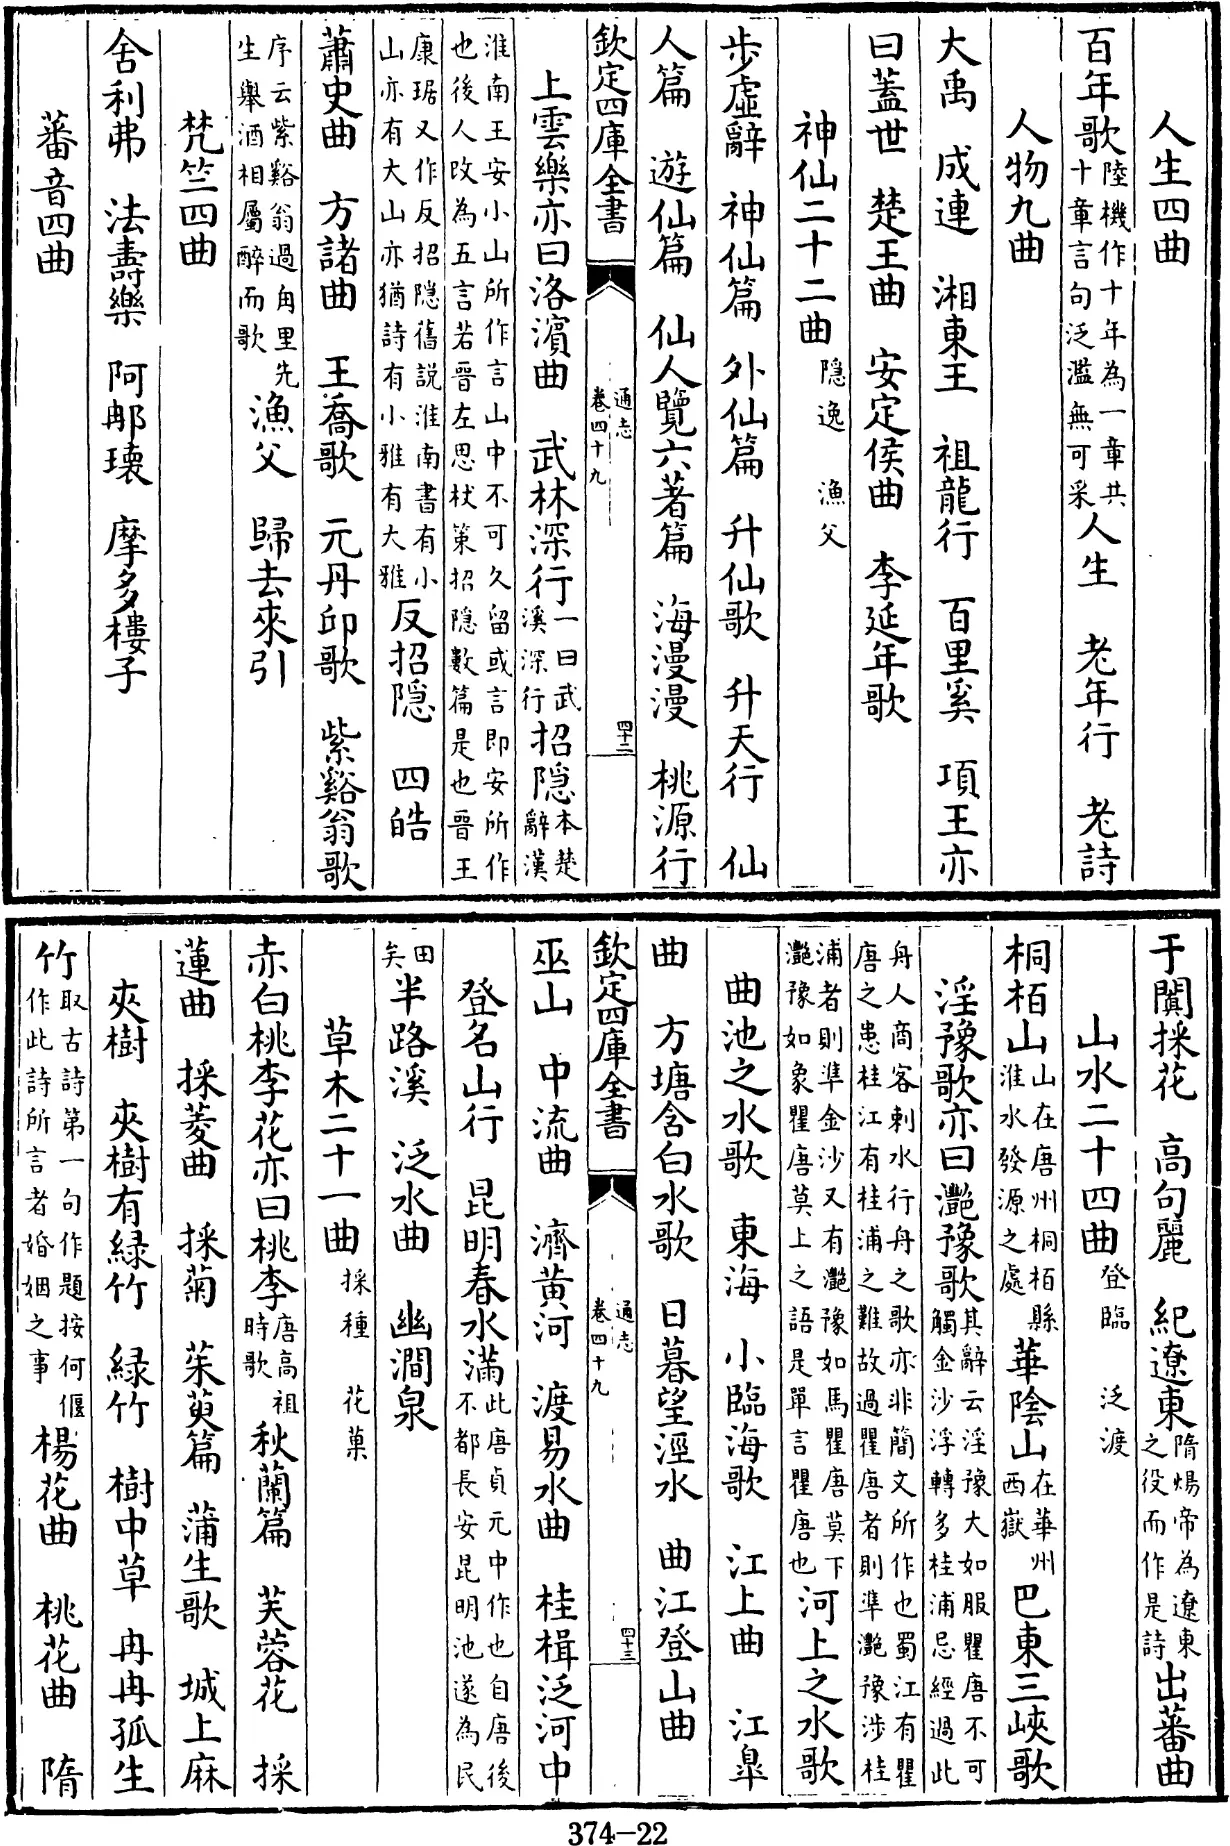 人生四曲
百年歌陸機作十年為一章共十章言句泛濫無可采人生　老年行　老詩
人物九曲
大禹　成連　湘東王　祖龍行　百里奚　項王亦
曰蓋世　楚王曲　安定侯曲　李延年歌
神仙二十二曲隠逸　漁父
步虛辭　神仙篇　外仙篇　升仙歌　升天行　仙
人篇　遊仙篇　仙人覽六著篇　海漫漫　桃源行
欽定四庫全書　通志卷四十九　四十二
上雲樂亦曰洛濱曲　武林深行一曰武溪深行招隠本楚辭漢
淮南王安小山所作言山中不可久留或言即安所作也後人改為五言若晉左思杖策招隠數篇是也晉王
康琚又作反招隠舊説淮南書有小山亦有大山亦猶詩有小雅有大雅反招隠　四皓
蕭史曲　方諸曲　王喬歌　元丹邱歌　紫谿翁歌
序云紫谿翁過甪里先生舉酒相屬醉而歌漁父　歸去來引
梵竺四曲
舍利弗　法壽樂　阿𨙻瓌　摩多樓子
蕃音四曲
于闐採花　高句麗　紀遼東隋煬帝為遼東之役而作是詩出蕃曲
山水二十四曲登臨　泛渡
桐栢山山在唐州桐栢縣淮水發源之處華陰山在華州西嶽巴東三峽歌
淫豫歌亦曰灔豫歌其辭云淫豫大如服瞿唐不可觸金沙浮轉多桂浦忌經過此
舟人商客刺水行舟之歌亦非簡文所作也蜀江有瞿唐之患桂江有桂浦之難故過瞿唐者則準灔豫涉桂
浦者則準金沙又有灔豫如馬瞿唐莫下灔豫如象瞿唐莫上之語是單言瞿唐也河上之水歌
曲池之水歌　東海　小臨海歌　江上曲　江臯
曲　方塘含白水歌　日暮望涇水　曲江登山曲
欽定四庫全書　通志卷四十九　四十三
巫山　中流曲　濟黄河　渡易水曲　桂楫泛河中
登名山行　昆明春水滿此唐貞元中作也自唐後不都長安昆明池遂為民
田矣半路溪　泛水曲　幽澗泉
草木二十一曲採種　花菓
赤白桃李花亦曰桃李唐高祖時歌秋蘭篇　芙蓉花　採
蓮曲　採菱曲　採菊　茱萸篇　蒲生歌　城上麻
夾樹　夾樹有緑竹　緑竹　樹中草　冉冉孤生
竹取古詩第一句作題按何偃作此詩所言者婚姻之事楊花曲　桃花曲　隋
374-22